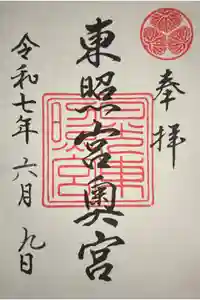 奉拝
東照宮奥宮
令和七年六月九日